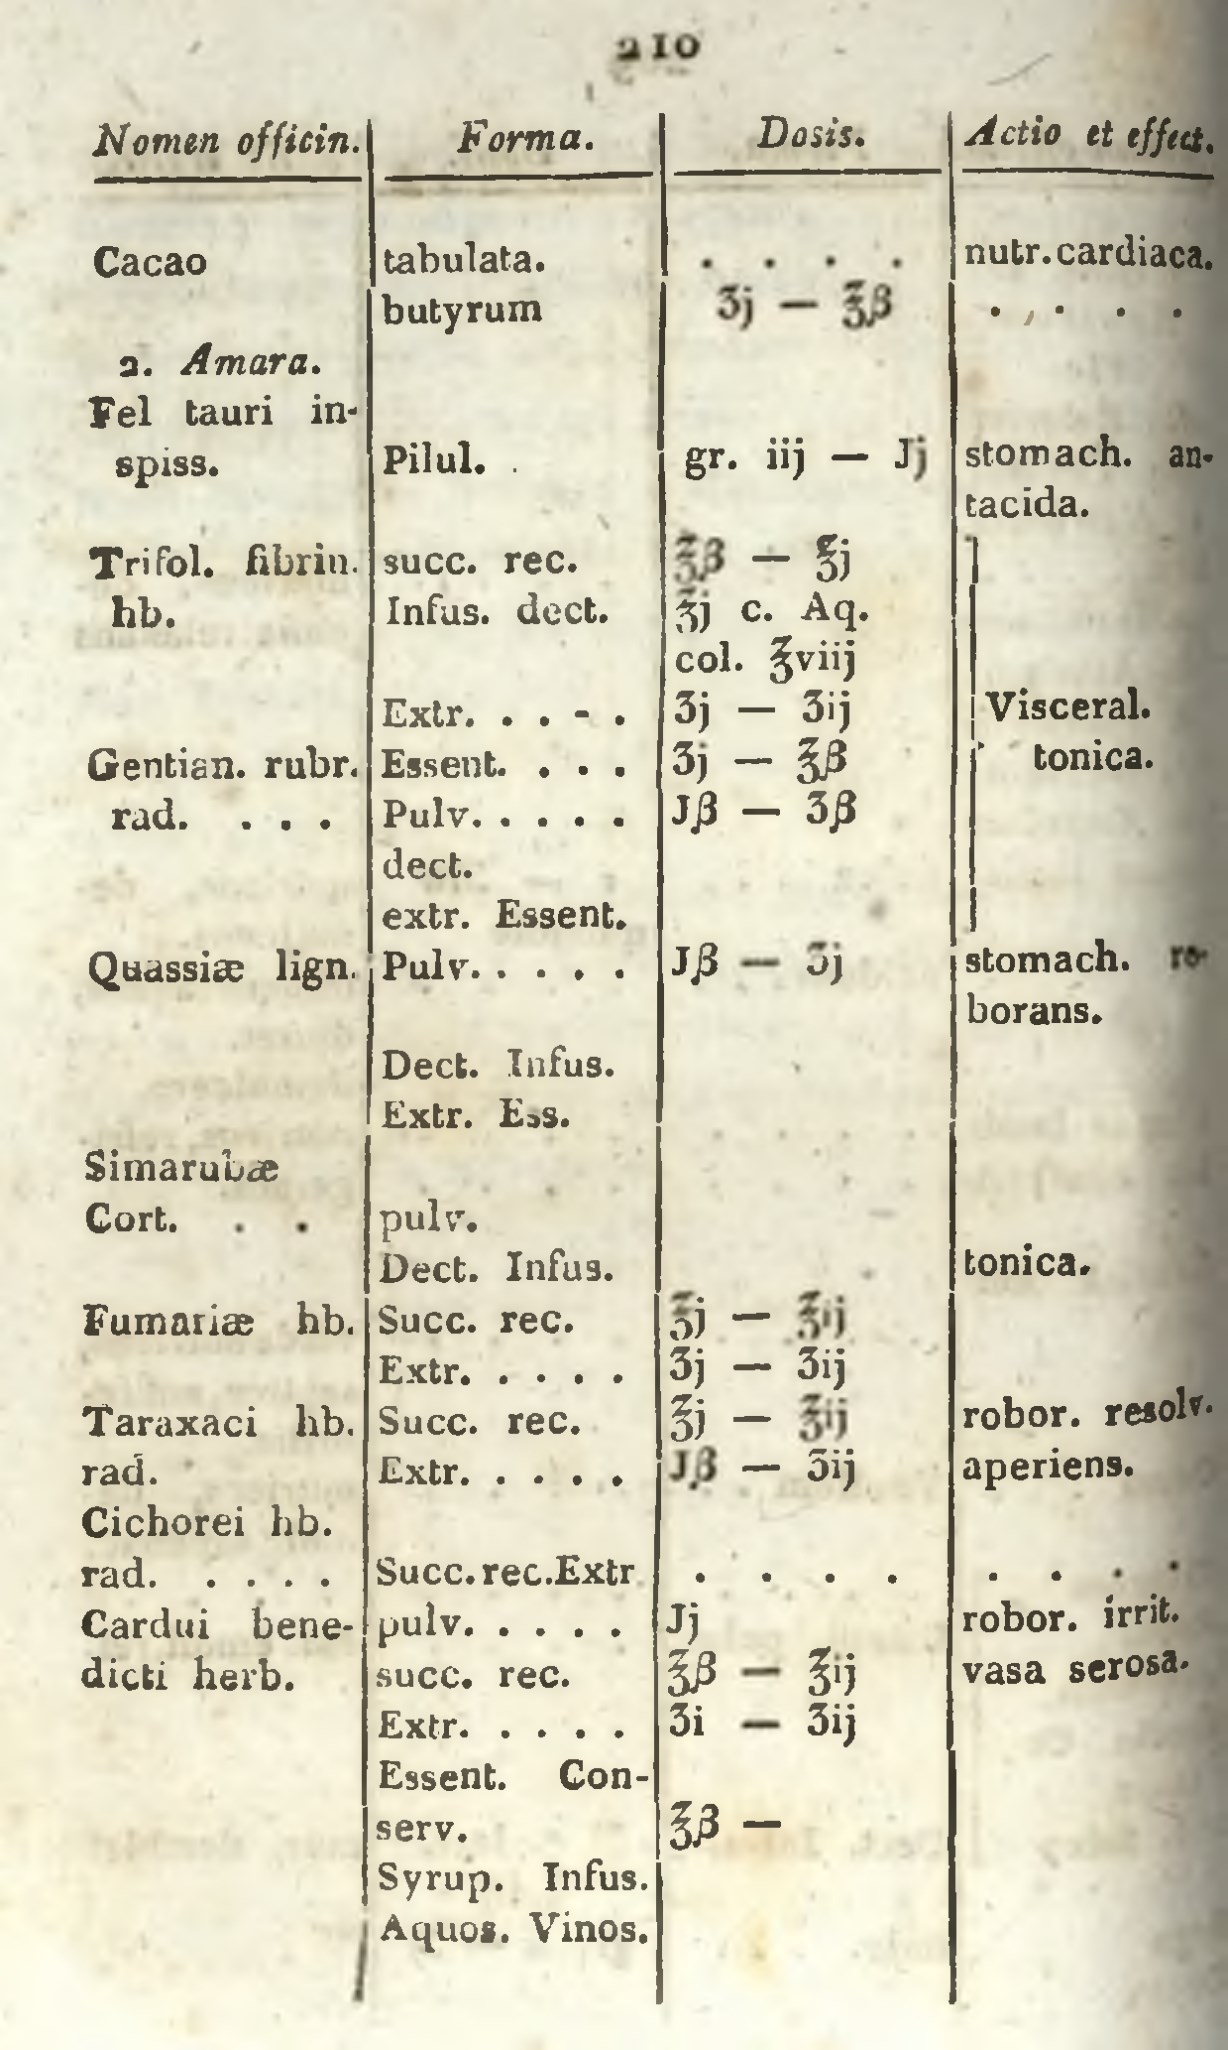 210
Nomen officin. Forma. Dosis. Actio et effect.
Cacao tabulata. . . . . nutr. cardiaca.
butyrum ʒj — ℥β . . . .
2. Amara.
Fel tauri in-
spiss. Pilul. . gr. iij — Jj stomach. an-
tacida.
Trifol. fibrin. succ. rec. ℥β — ℥j
hb. Infus. dect. ℥j c. Aq.
col. ℥viij
Extr. . . - . ʒj — ʒij Visceral.
Gentian. rubr. Essent. . . . ʒj — ℥β tonica.
rad. . . . Pulv. . . . . Jβ — ʒβ
dect.
extr. Essent.
Quassiæ lign. Pulv. . . . . Jβ — ʒj stomach. ro-
borans.
Dect. Infus.
Extr. Ess.
Simarubæ
Cort. . . pulv.
Dect. Infus. tonica.
Fumariæ hb. Succ. rec. ℥j — ℥ij
Extr. . . . . ʒj — ʒij
Taraxaci hb. Succ. rec. ℥j — ℥ij robor. resolv.
rad. Extr. . . . . Jβ — ʒij aperiens.
Cichorei hb.
rad. . . . . Succ. rec. Extr . . . . . . . .
Cardui bene- pulv. . . . . Jj robor. irrit.
dicti herb. succ. rec. ℥β — ℥ij vasa serosa.
Extr. . . . . ʒi — ʒij
Essent. Con-
serv. ℥β —
Syrup. Infus.
Aquos. Vinos.